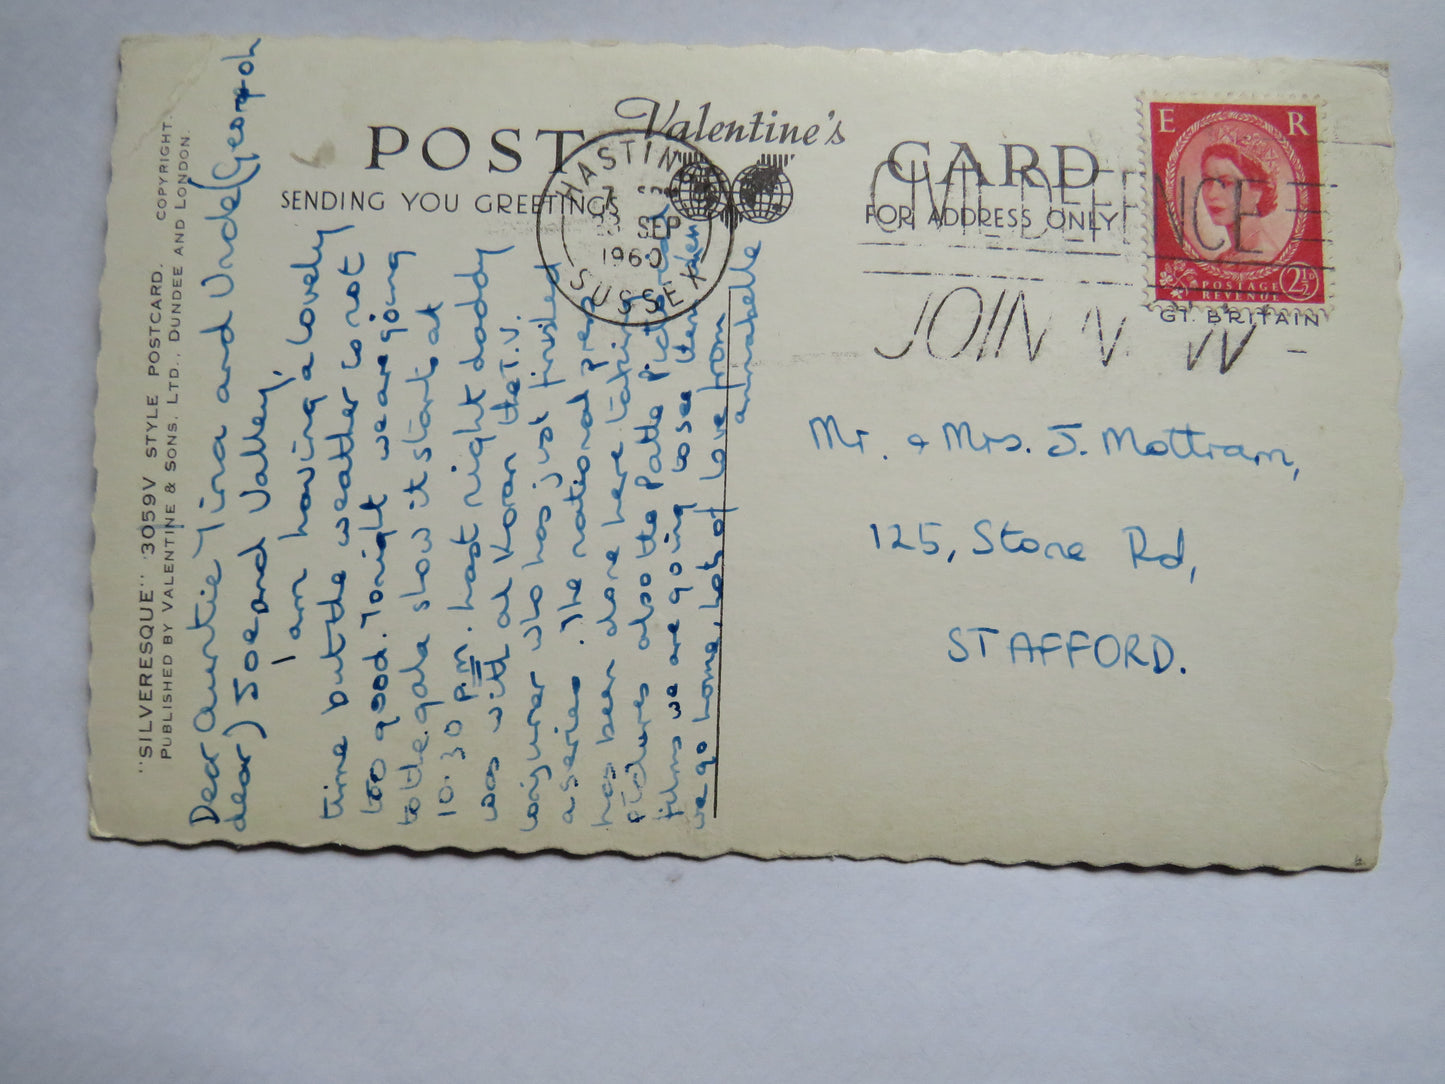 POST Valentine's CARD
SENDING YOU GREETINGS
FOR ADDRESS ONLY
HASTIN
SEP
1960
SUSSEX
CIVIL DEFENCE
JOIN N W
E R
POSTAGE
REVENUE
2½D
GT. BRITAIN
"SILVERESQUE" 3059V STYLE POSTCARD. COPYRIGHT.
PUBLISHED BY VALENTINE & SONS. LTD., DUNDEE AND LONDON.
Dear Auntie Tina and Uncle (George oh
dear) Joe and Valley,
I am having a lovely
time but the weather is not
to good. Tonight we are going
to the gala show it starts at
10.30 p.m. Last night daddy
was with al Koran the T.V.
conjurer who has just finished
a series. The national press
has been done here taking
pictures also the Pathe Pictorial
films we are going to see them when
we go home, lots of love from
annabelle
Mr. & Mrs. J. Mottram,
125, Stone Rd,
STAFFORD.